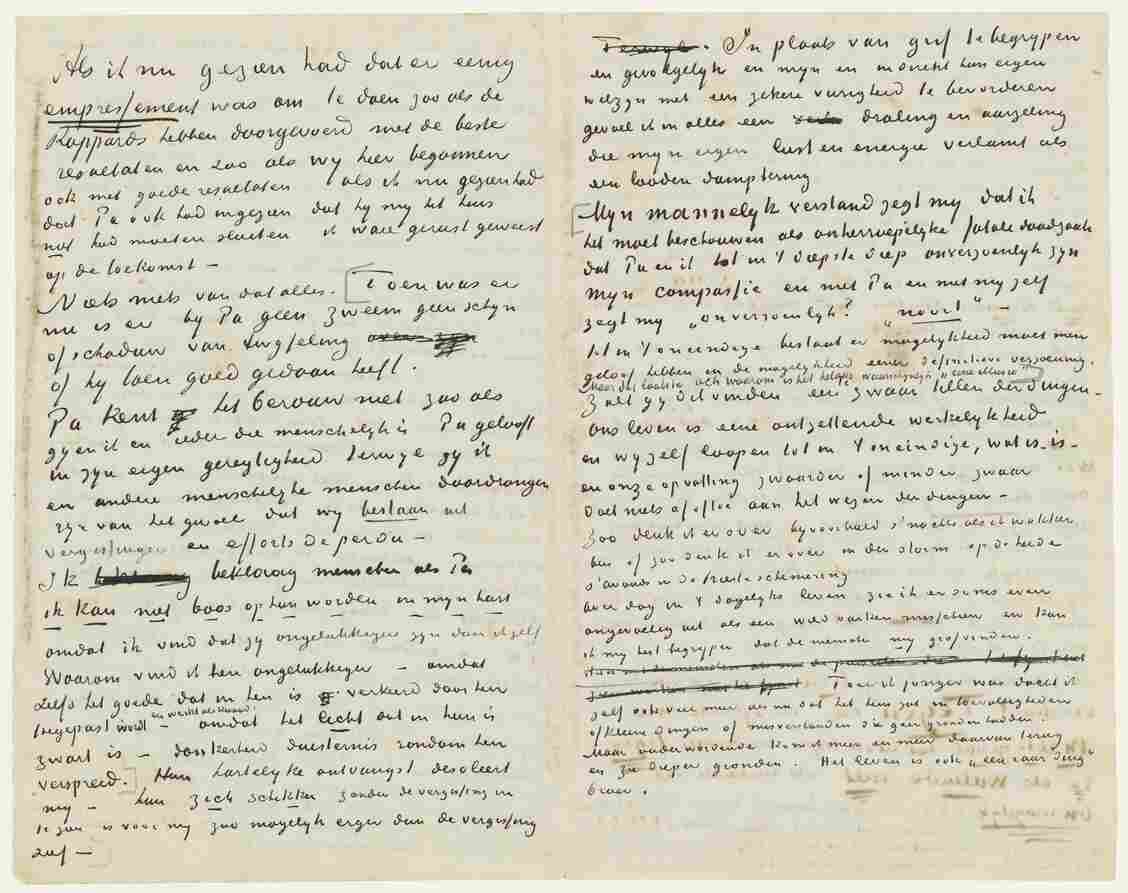 Als ik nu gezien had dat er eenig
empressement was om te doen zoo als de
Rappards hebben doorgevoerd met de beste
resultaten en zoo als wy hier begonnen
ook met goede resultaten als ik nu gezien had
dat Pa ook had ingezien dat hy my het huis
niet had moeten sluiten ik ware gerust geweest
op de toekomst —
Niets niets van dat alles. [Toen was er
nu is er by Pa geen zweem geen schyn
of schaduw van twyfeling
of hy toen goed gedaan heeft.
Pa kent het berouw niet zoo als
gy en ik en ieder die menschelyk is Pa gelooft
in zyn eigen geregtigheid terwyl gy ik
en andere menschelyke menschen doordrongen
zyn van het gevoel dat wy bestaan uit
vergissingen en efforts de perdu —
Ik beklaag menschen als Pa
ik kan niet boos op hen worden in myn hart
omdat ik vind dat zy ongelukkiger zyn dan ik zelf
Waarom vind ik hen ongelukkiger — omdat
zelfs het goede dat in hen is verkeerd door hen
toegepast wordt en werkt als kwaad — omdat het licht dat in hen is
zwart is — donkerheid duisternis rondom hen
verspreid.] Hun hartelyke ontvangst desoleert
my — hun zich schikken zonder de vergissing in
te zien is voor my zoo mogelyk erger dan de vergissing
zelf —
Terwyl. In plaats van grif te begrypen
en gevolgelyk en myn en indirekt hun eigen
welzyn met een zekere vurigheid te bevorderen
gevoel ik in alles een draling en aarzeling
die myn eigen lust en energie verlamt als
een looden dampkring
[Myn mannelyk verstand zegt my dat ik
het moet beschouwen als onherroepelyke fatale daadzaak
dat Pa en ik tot in 't diepste diep onverzoenlyk zyn
myn compassie en met Pa en met my zelf
zegt my „onverzoenlyk? „nooit" —
tot in 't oneindige bestaat er mogelykheid moet men
geloof hebben in de mogelykheid eener definitieve verzoening.
Maar dit laatste ach waarom is het helaas waarschynlyk „une illusion"
Zult gy dit vinden een zwaar tillen der dingen —
ons leven is eene ontzettende werkelykheid
en wy zelf loopen tot in 't oneindige, wat is — is —
en onze opvatting zwaarder of minder zwaar
doet niets af of toe aan het wezen der dingen —
Zoo denk ik er over byvoorbeeld s'nachts als ik wakker
ben of zoo denk ik er over in den storm op de heide
s'avonds in de trieste schemering
over dag in 't dagelyks leven zie ik er soms even
ongevoelig uit als een wild varken misschien en kan
ik my best begrypen dat de menschen my grof vinden.
Toen ik jonger was dacht ik
zelf ook veel meer als nu dat het hem zat in toevalligheden
of kleine dingen of misverstanden die geen gronden hadden.
Maar ouder wordende kom ik meer en meer daarvan terug
en zie dieper gronden. Het leven is ook „een raar ding"
broer.